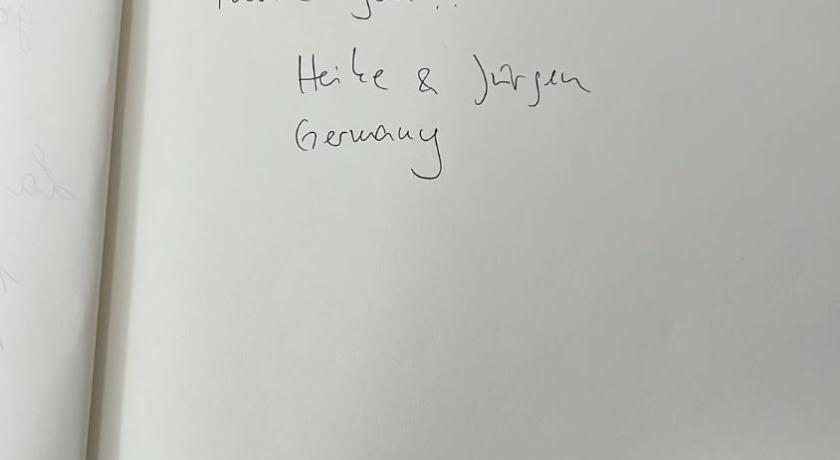 Heike & Jürgen
Germany